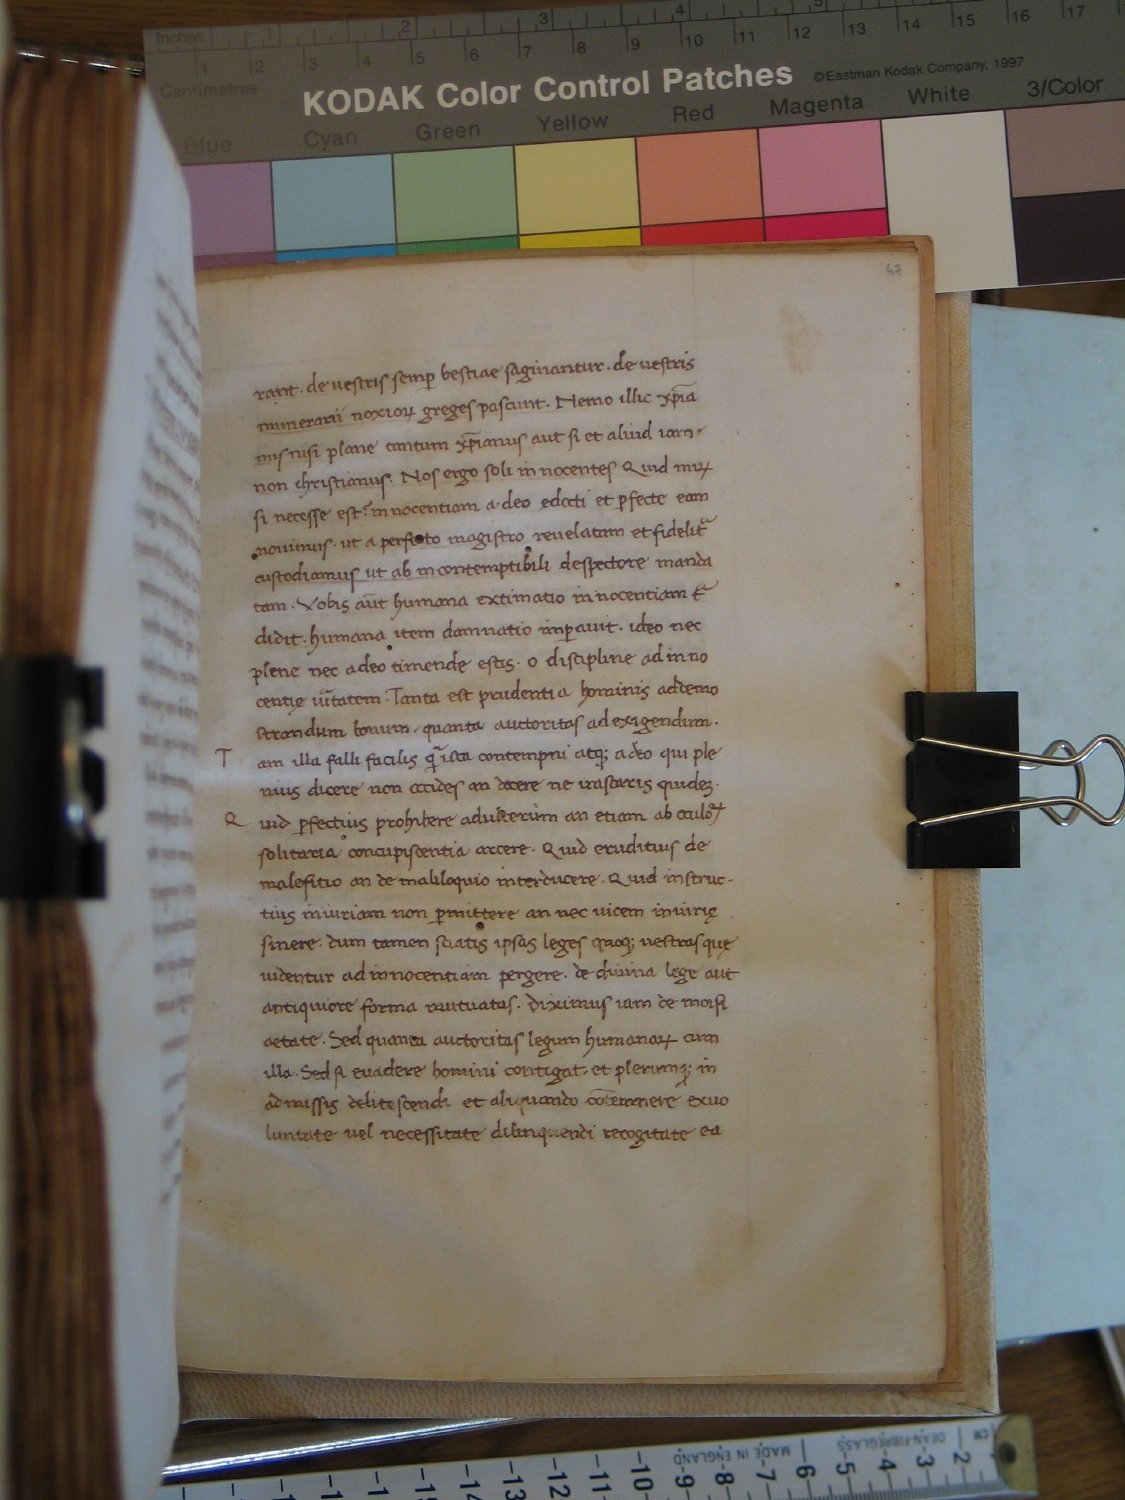 Inches 1 2 3 4 5
1 2 3 4 5 6 7 8 9 10 11 12 13 14 15 16 17
Centimetres
KODAK Color Control Patches ©Eastman Kodak Company, 1997
Blue Cyan Green Yellow Red Magenta White 3/Color
47
rant. de uestris semp̄ bestiae saginantur. de uestris
munerarii noxioꝝ greges pascunt. Nemo illic xp̄ia
nus nisi plane tantum xp̄ianus aut si et aliud iam
non christianus. Nos ergo soli innocentes Quid miꝝ
si necesse est. innocentiam a deo edocti et ꝑfecte eam
nouimus. ut a perfecto magistro reuelatam et fidelit̄
custodiamus ut ab incontemptibili despectore manda
tam. Vobis aūt humana extimatio innocentiam t̄
didit. humana item damnatio imꝑauit. ideo nec
plene nec adeo timendę estis. o discipline ad inno
centię ūitatem. Tanta est prudentia hominis ad demo
strandum bonum. quanta auctoritas ad exigendum.
T am illa falli facilis q̄ ista contempni atq; adeo qui ple
nius dicere non occides an docere ne irascaris quidez.
Q uid ꝑfectius prohibere adulterium an etiam ab oculoꝝ
solitaria concupiscentia arcere. Quid eruditius de
malefitio an de maliloquio interducere. Quid instruc-
tius iniuriam non ꝑmittere an nec uicem iniurię
sinere. dum tamen sciatis ipsas leges quoq; uestras quę
uidentur ad innocentiam pergere. de diuina lege aut
antiquiore forma mutuatas. Diximus iam de moisi
aetate. Sed quanta auctoritas legum humanaꝝ cum
illa. Sed si euadere homini contigat. et plerumq; in
admissis delitescendi et aliquando cōtemnere exuo
luntate uel necessitate dilinquendi recogitate ea
CM DEAN FIBREGLASS MADE IN ENGLAND
2 3 4 5 6 7 8 9 10 11 12 13